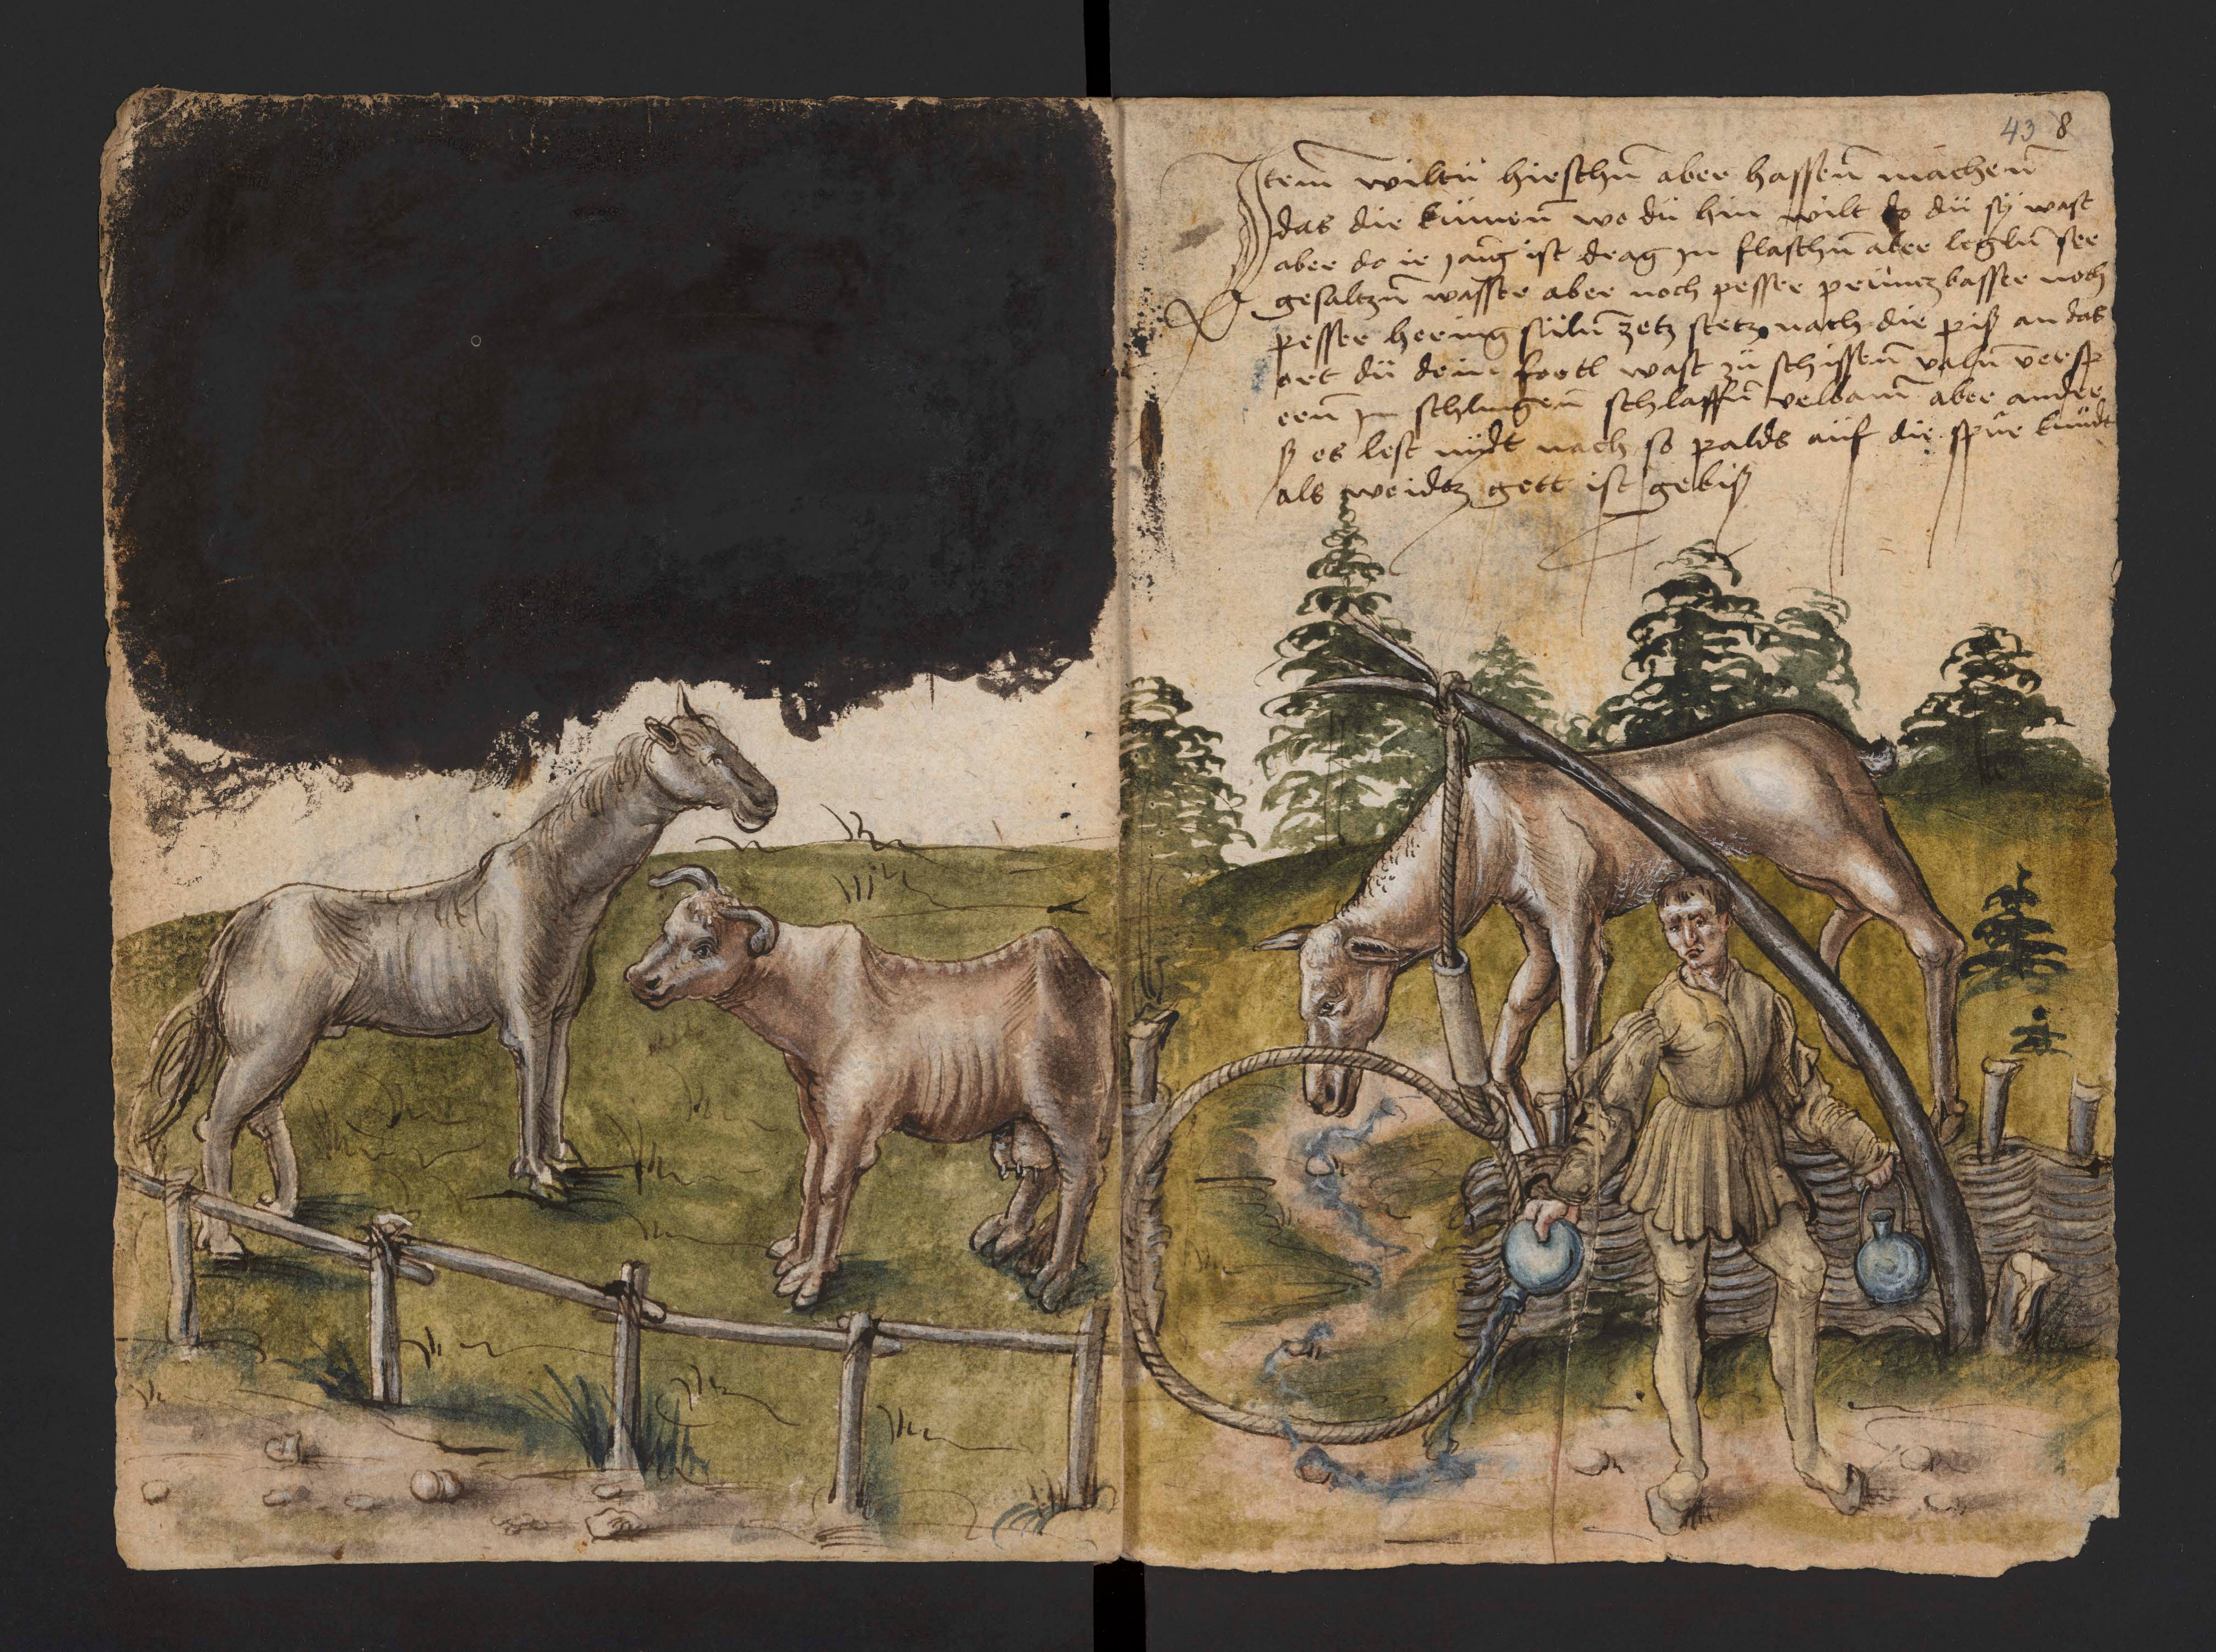 43 8
Item wiltu hirschn̄ aber hassen̄ machen̄
das die kumen̄ wo du hin wilt do du sy wast
aber do ir gang ist drag in flaschn̄ aber legln̄ ser
gesaltzn̄ wasser aber noch pesser pruntzbasser noch
pesser hering sultn̄ zetz stetz nach die piß an das
ort du dein wast zu schissen̄ valn̄
ern̄ in schlingen̄ schlaffn̄ velbam̄ aber ander
ß es lest nydt nach so palds auf die spur kumdt
als weidtz gett ist gebiß